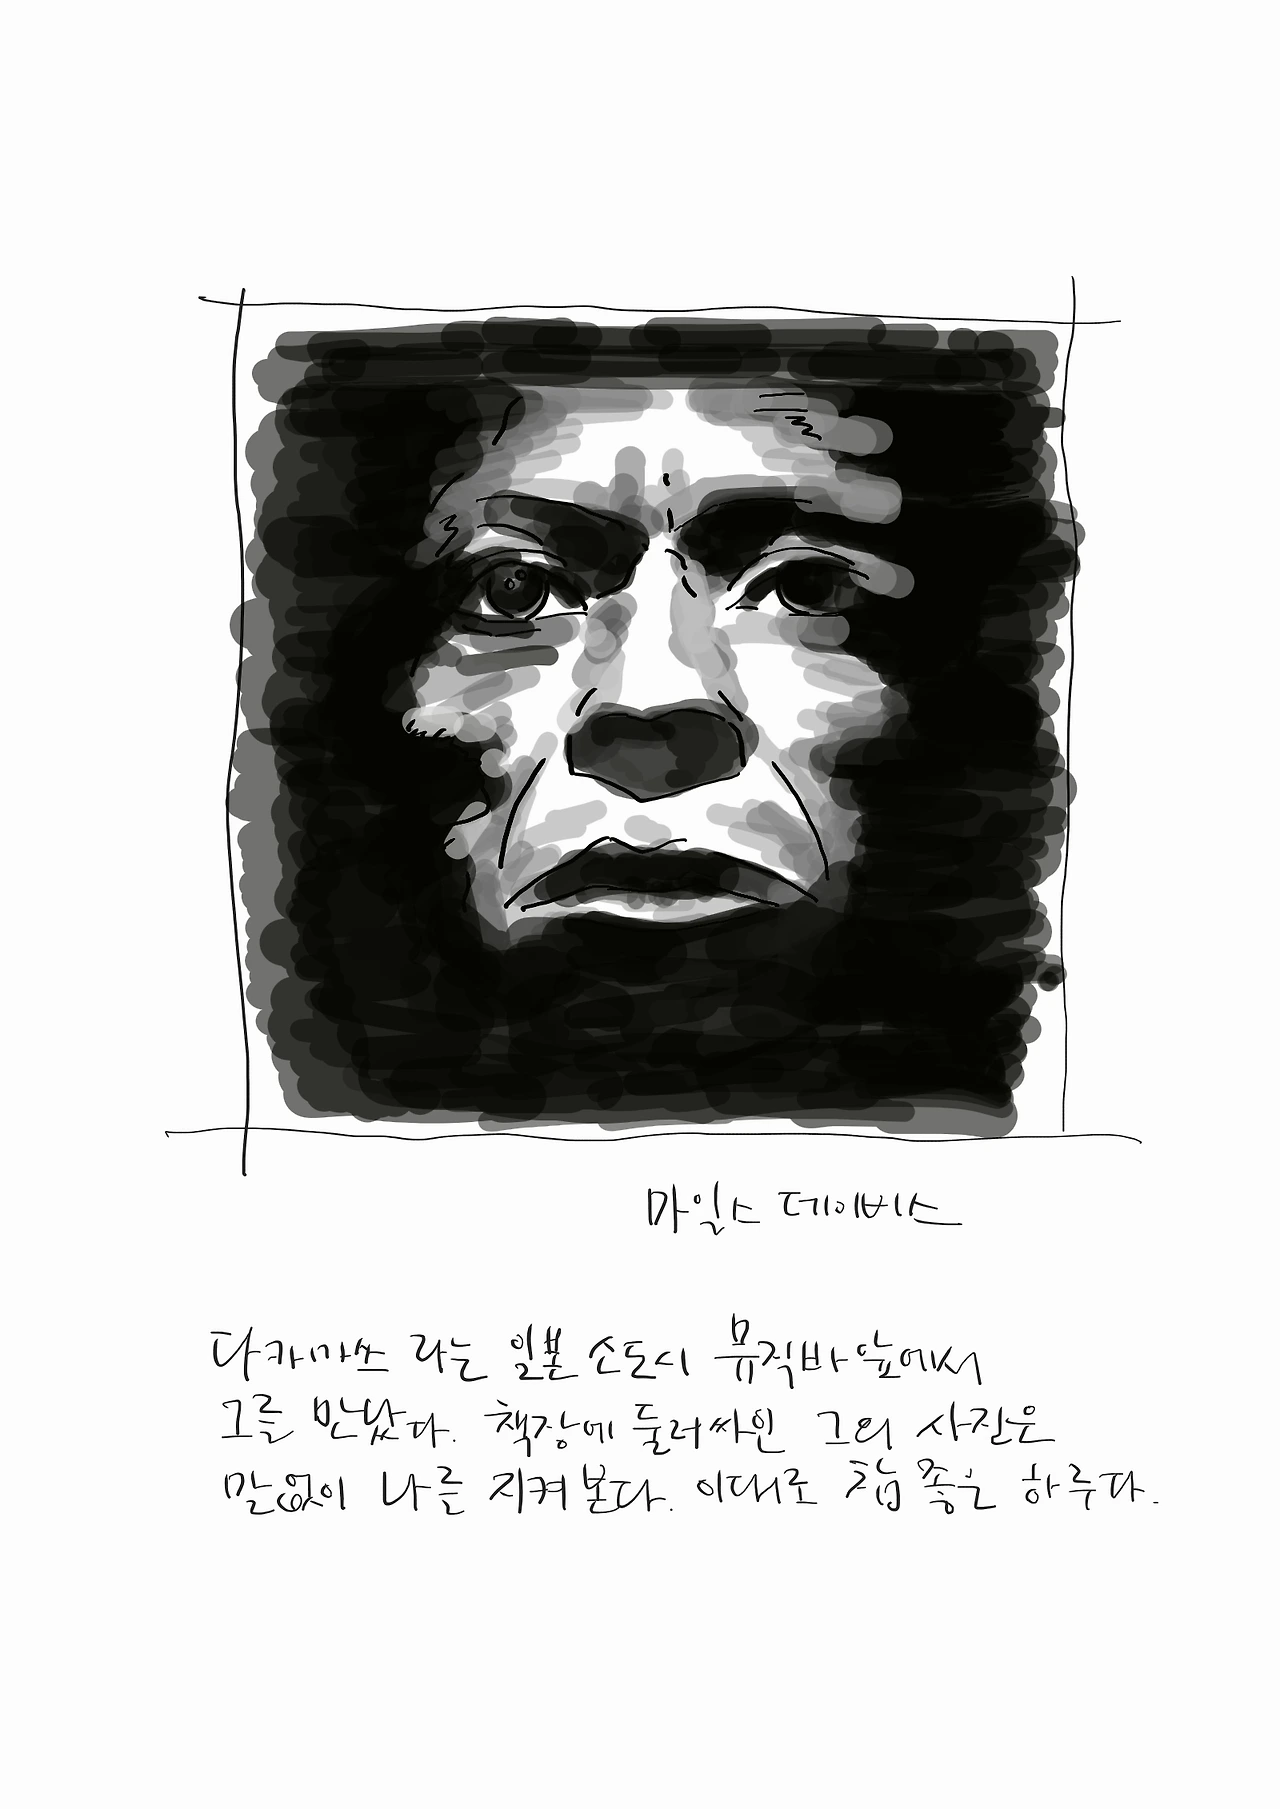 마일스 데이비스
다카마쓰 라는 일본 소도시 뮤직바 앞에서
그를 만났다. 책장에 둘러싸인 그의 사진은
말없이 나를 지켜본다. 이대로 참 좋은 하루다.